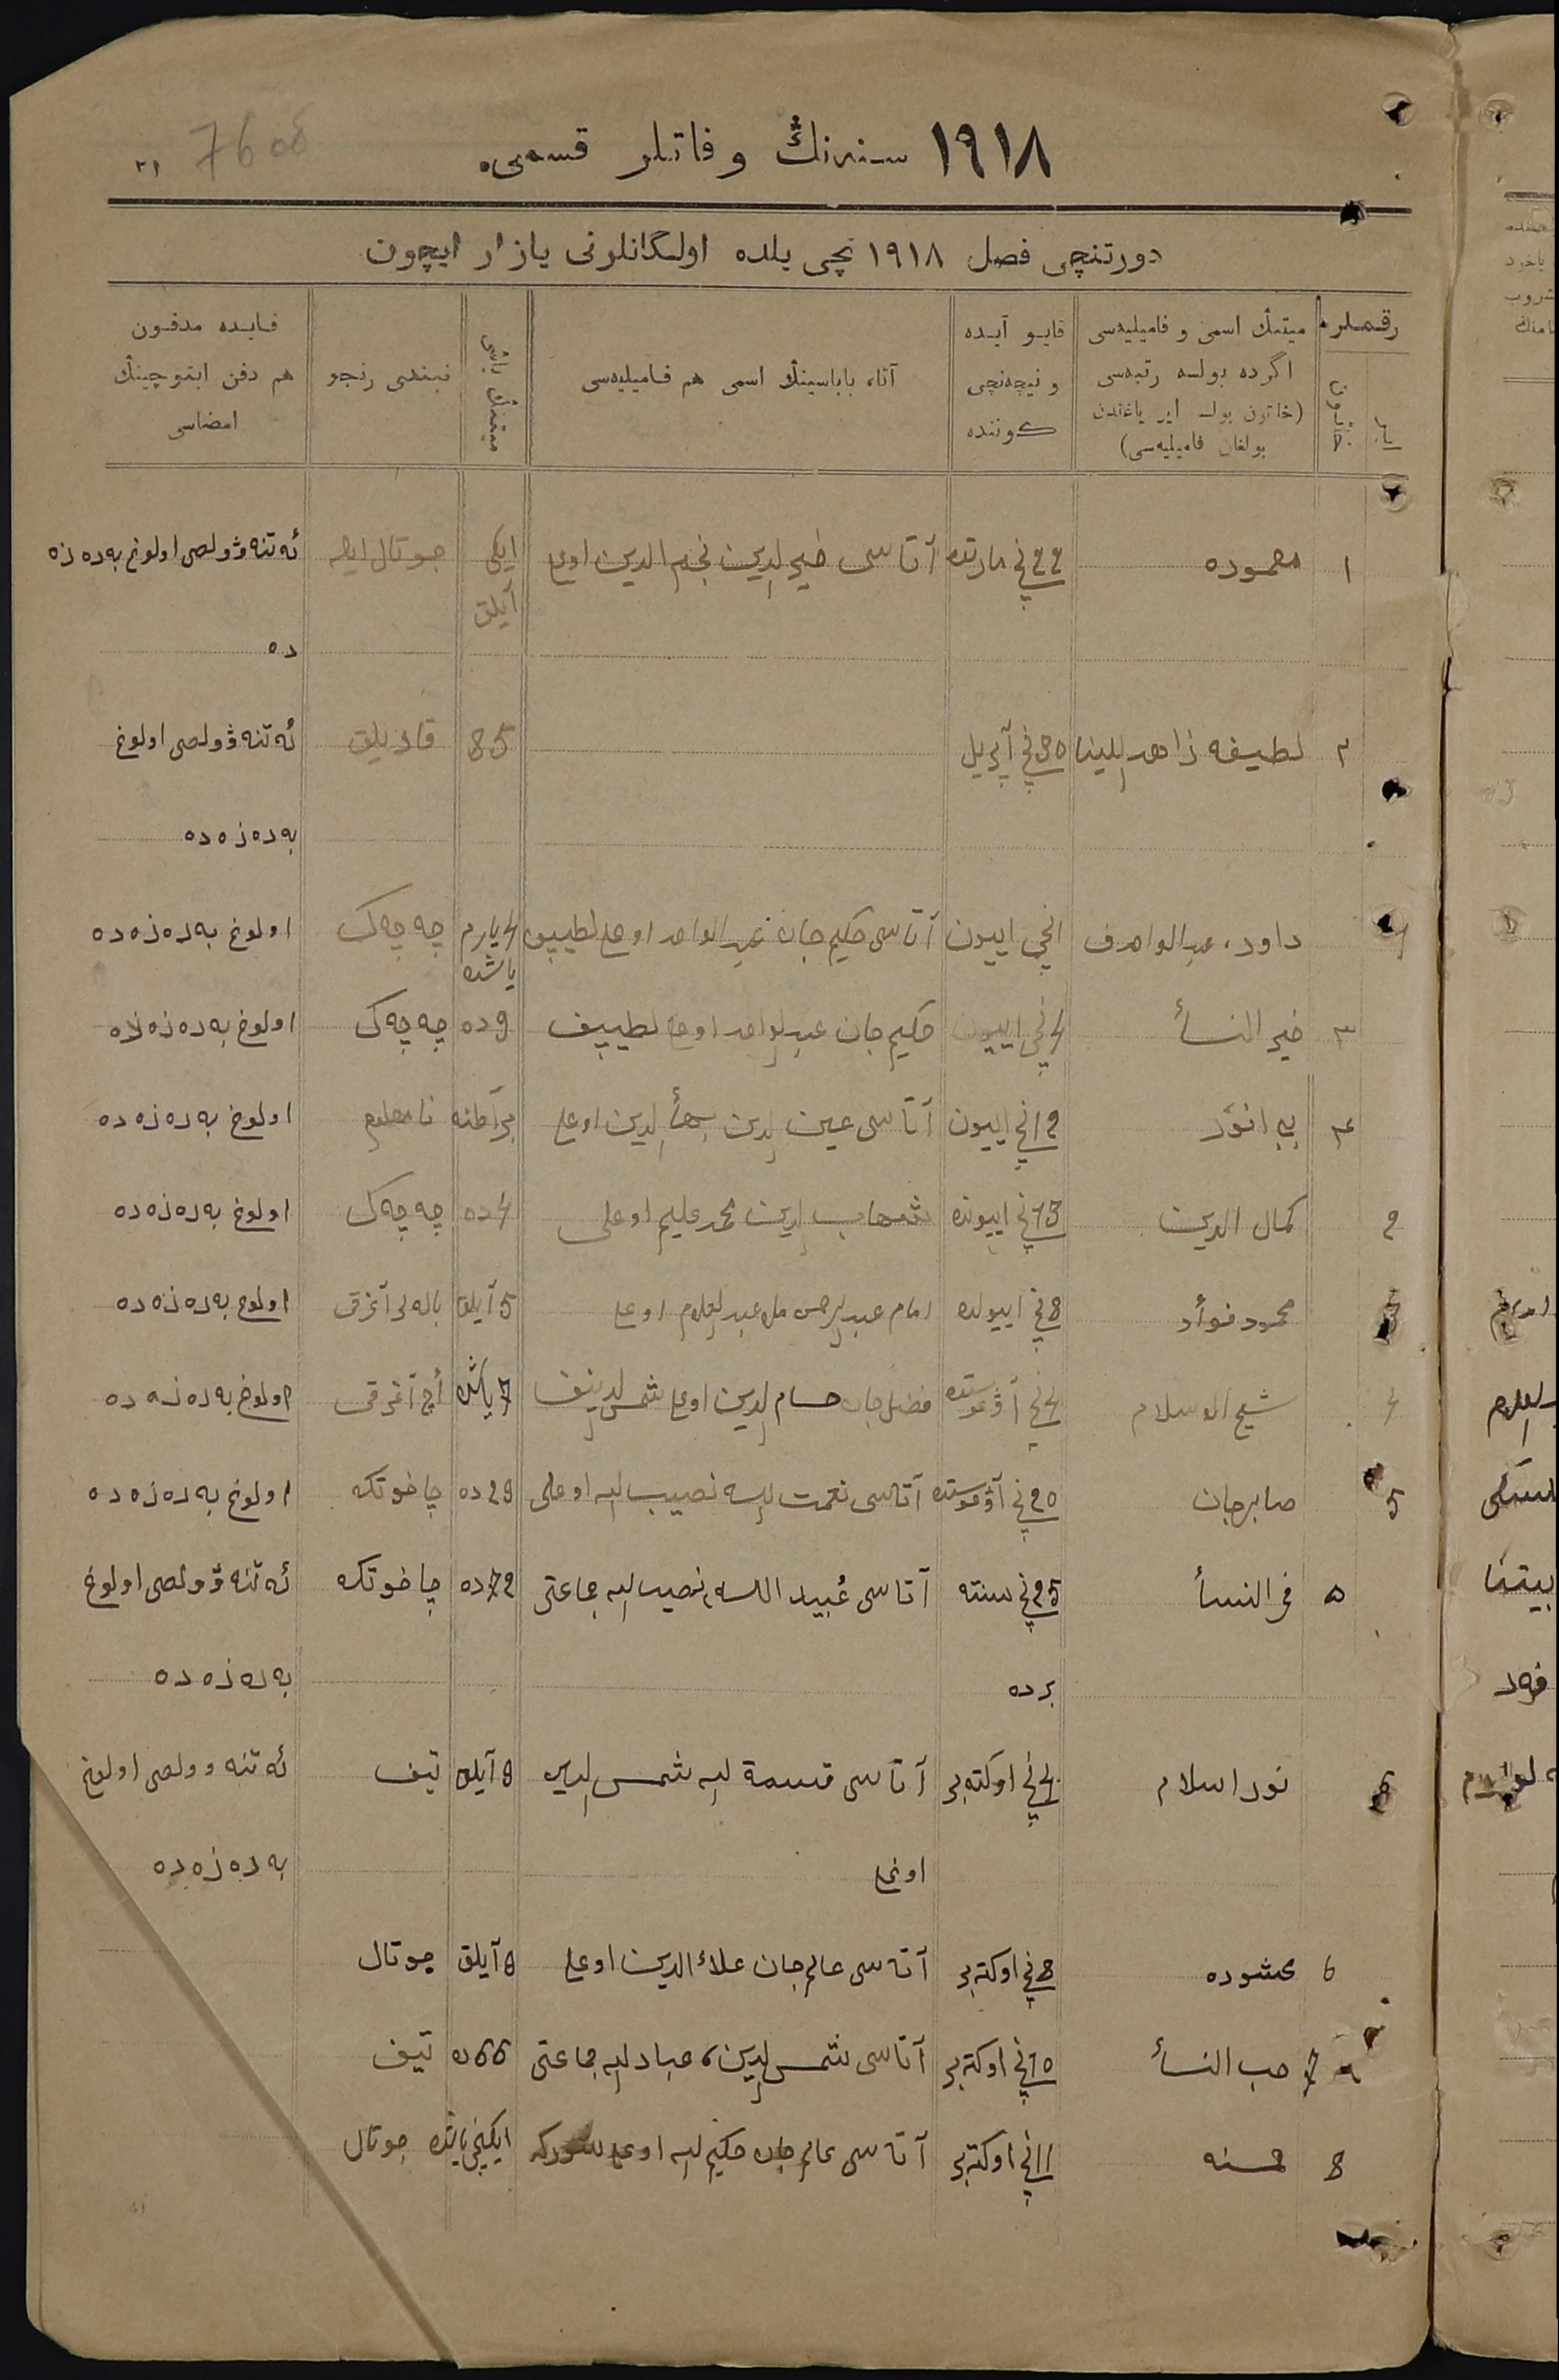 ١٩١٨ سنه‌نڭ وفاتلر قسمی.
7608
٢١
دورتنچی فصل ١٩١٨ نچی یلده اولگانلرنی یازار ایچون
رقملر.
میتنڭ اسمی و فامیلیه‌سی اگرده بولسه رتبه‌سی (خاتون بولسه ایر یاغندن بولغان فامیلیه‌سی)
قایو آیده و نیچه‌نچی کوننده
آتا، باباسینڭ اسمی هم فامیلیه‌سی
میتنڭ یاشی
نیندی رنجو
قایده مدفون هم دفن ایتوچینڭ امضاسی
١ محموده 22 نچی مارتده آتاسی خیر الدین نجم الدین اوغلی ایکی آیلق جوتال ایله ئه‌تنه ۋولصی اولوغ به‌ره‌زه
ده
٢ لطیفه زاهد اللینا 30 نچی آپریل 85 قارتلق ئه‌تنه ۋولصی اولوغ
به‌ره‌زه ده
1 داود، عبد الواحدف 1نچی اییون آتاسی حکیم جان عبد الواحد اوغلی لطییف 4 یارم یاشده چه‌چه‌ک اولوغ به‌ره‌زه ده
٣ خیر النسأ 4 نچی اییون حکیم جان عبد الواحد اوغلی لطییف 9 ده چه‌چه‌ک اولوغ به‌ره‌زه ده
٤ بی انور 12 نچی اییون آتاسی عین الدین اوغلی بر آطنه نامعلوم اولوغ به‌ره‌زه ده
2 کمال الدین 13 نچی اییونده شهاب الدین محمد علیم اوغلی 4 ده چه‌چه‌ک اولوغ به‌ره‌زه ده
3 محمود فوأد 8 نچی اییولده امام عبد الرحمن ملا عبد العلام اوغلی 5 آیلق باله‌لر آغرقی اولوغ به‌ره‌زه ده
4 شیخ الاسلام نچی آۋغوستده فضل جان حسام الدین اوغلی شمس الدینف 7 یاشده أچ آغرقی اولوغ به‌ره‌زه ده
5 صابرجان 20 نچی آۋغوستده آتاسی نعمت الله نصیب الله اوغلی 29 ده چاخوتکه اولوغ به‌ره‌زه ده
٥ فخر النسأ 25 نچی سنته آتاسی عُبید الله، نصیب الله جماعتی 72 ده چاخوتکه ئه‌تنه ۋولصی اولوغ
برده به‌ره‌زه ده
6 نور اسلام نچی اوکته‌بر آتاسی قسمة الله شمس الدین 8 آیلق تیف ئه‌تنه وولصی اولوغ
اوغلی به‌ره‌زه ده
6 8 نچی اوکته‌بر آتاسی عالم جان علاء الدین اوغلی 8 آیلق جوتال
7 حب النسأ 10 نچی اوکته‌بر آتاسی شمس الدین، عباد الله جماعتی 66 ده تیف
8 حسنه 11 نچی اوکته‌بر آتاسی عالم جان حکیم الله اوغلی ایکنچی یاشده جوتال